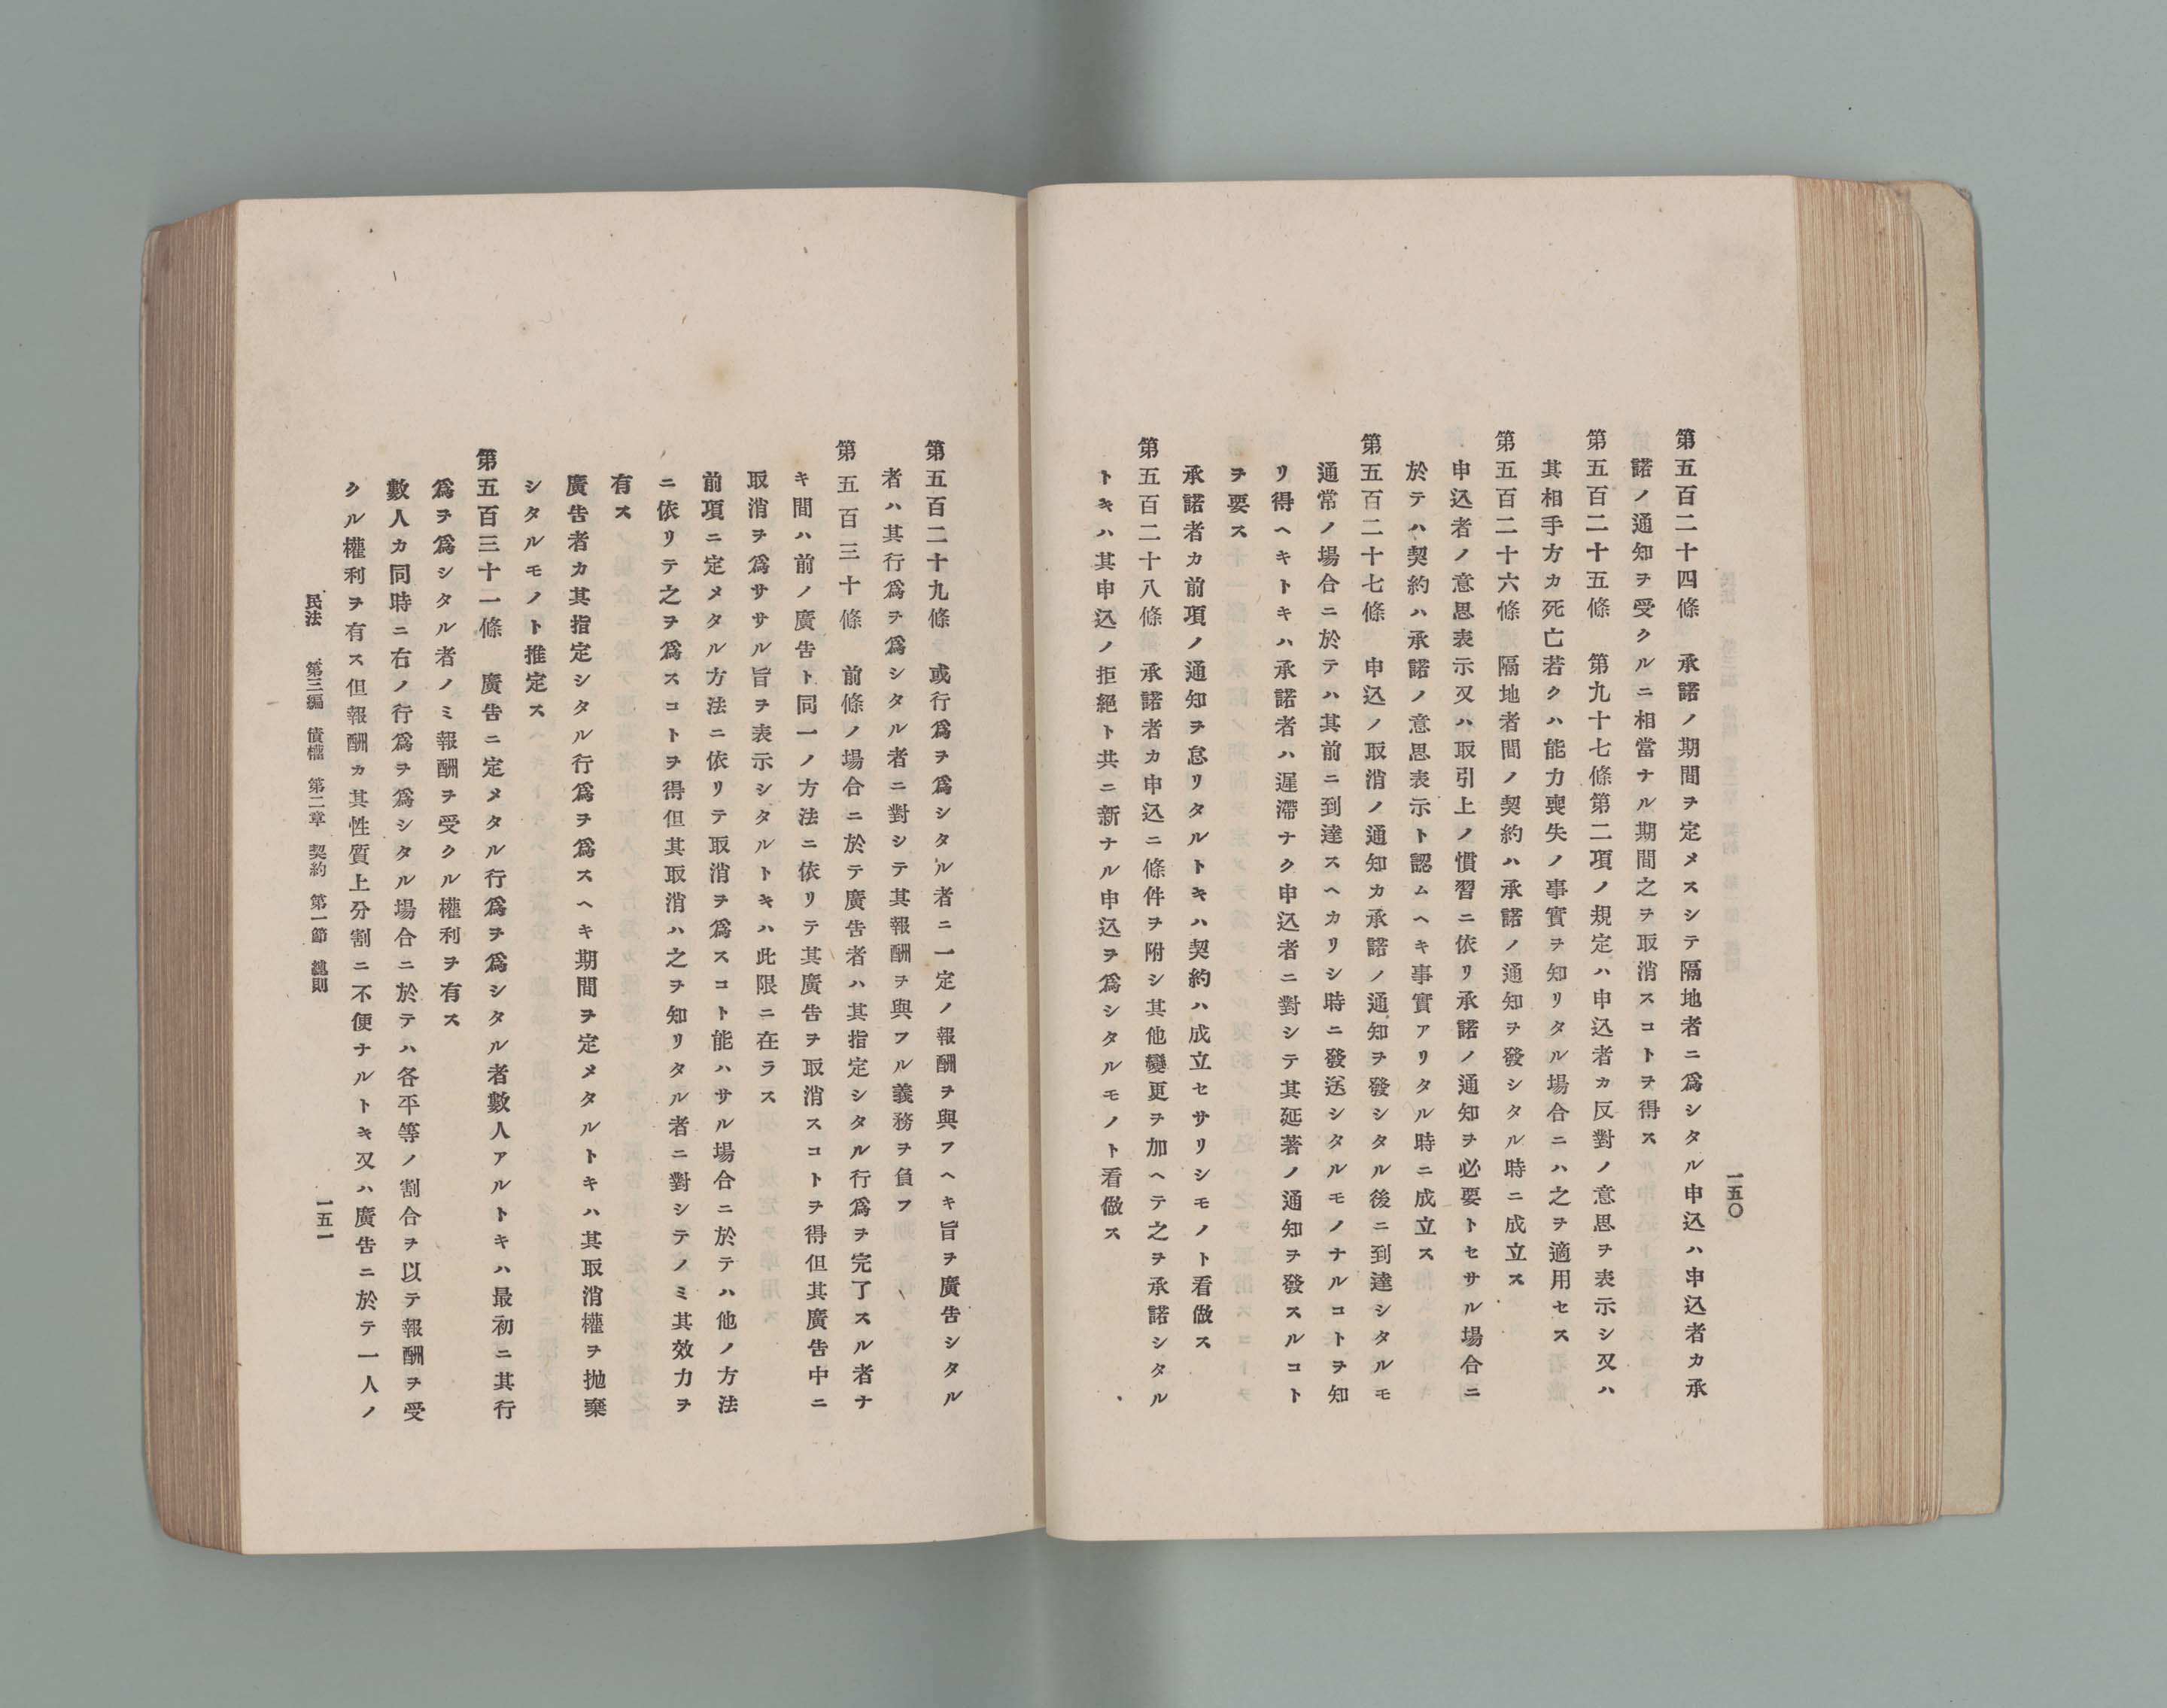 一五〇
第五百二十四條　承諾ノ期間ヲ定メスシテ隔地者ニ爲シタル申込ハ申込者カ承
諾ノ通知ヲ受クルニ相當ナル期間之ヲ取消スコトヲ得ス
第五百二十五條　第九十七條第二項ノ規定ハ申込者カ反對ノ意思ヲ表示シ又ハ
其相手方カ死亡若クハ能力喪失ノ事實ヲ知リタル場合ニハ之ヲ適用セス
第五百二十六條　隔地者間ノ契約ハ承諾ノ通知ヲ發シタル時ニ成立ス
申込者ノ意思表示又ハ取引上ノ慣習ニ依リ承諾ノ通知ヲ必要トセサル場合ニ
於テハ契約ハ承諾ノ意思表示ト認ムヘキ事實アリタル時ニ成立ス
第五百二十七條　申込ノ取消ノ通知カ承諾ノ通知ヲ發シタル後ニ到達シタルモ
通常ノ場合ニ於テハ其前ニ到達スヘカリシ時ニ發送シタルモノナルコトヲ知
リ得ヘキトキハ承諾者ハ遲滯ナク申込者ニ對シテ其延著ノ通知ヲ發スルコト
ヲ要ス
承諾者カ前項ノ通知ヲ怠リタルトキハ契約ハ成立セサリシモノト看做ス
第五百二十八條　承諾者カ申込ニ條件ヲ附シ其他變更ヲ加ヘテ之ヲ承諾シタル
トキハ其申込ノ拒絕ト共ニ新ナル申込ヲ爲シタルモノト看做ス
第五百二十九條　或行爲ヲ爲シタル者ニ一定ノ報酬ヲ與フヘキ旨ヲ廣告シタル
者ハ其行爲ヲ爲シタル者ニ對シテ其報酬ヲ與フル義務ヲ負フ
第五百三十條　前條ノ場合ニ於テ廣告者ハ其指定シタル行爲ヲ完了スル者ナ
キ間ハ前ノ廣告ト同一ノ方法ニ依リテ其廣告ヲ取消スコトヲ得但其廣告中ニ
取消ヲ爲ササル旨ヲ表示シタルトキハ此限ニ在ラス
前項ニ定メタル方法ニ依リテ取消ヲ爲スコト能ハサル場合ニ於テハ他ノ方法
ニ依リテ之ヲ爲スコトヲ得但其取消ハ之ヲ知リタル者ニ對シテノミ其效力ヲ
有ス
廣告者カ其指定シタル行爲ヲ爲スヘキ期間ヲ定メタルトキハ其取消權ヲ抛棄
シタルモノト推定ス
第五百三十一條　廣告ニ定メタル行爲ヲ爲シタル者數人アルトキハ最初ニ其行
爲ヲ爲シタル者ノミ報酬ヲ受クル權利ヲ有ス
數人カ同時ニ右ノ行爲ヲ爲シタル場合ニ於テハ各平等ノ割合ヲ以テ報酬ヲ受
クル權利ヲ有ス但報酬カ其性質上分割ニ不便ナルトキ又ハ廣告ニ於テ一人ノ
民法　第三編　債權　第二章　契約　第一節　總則　一五一